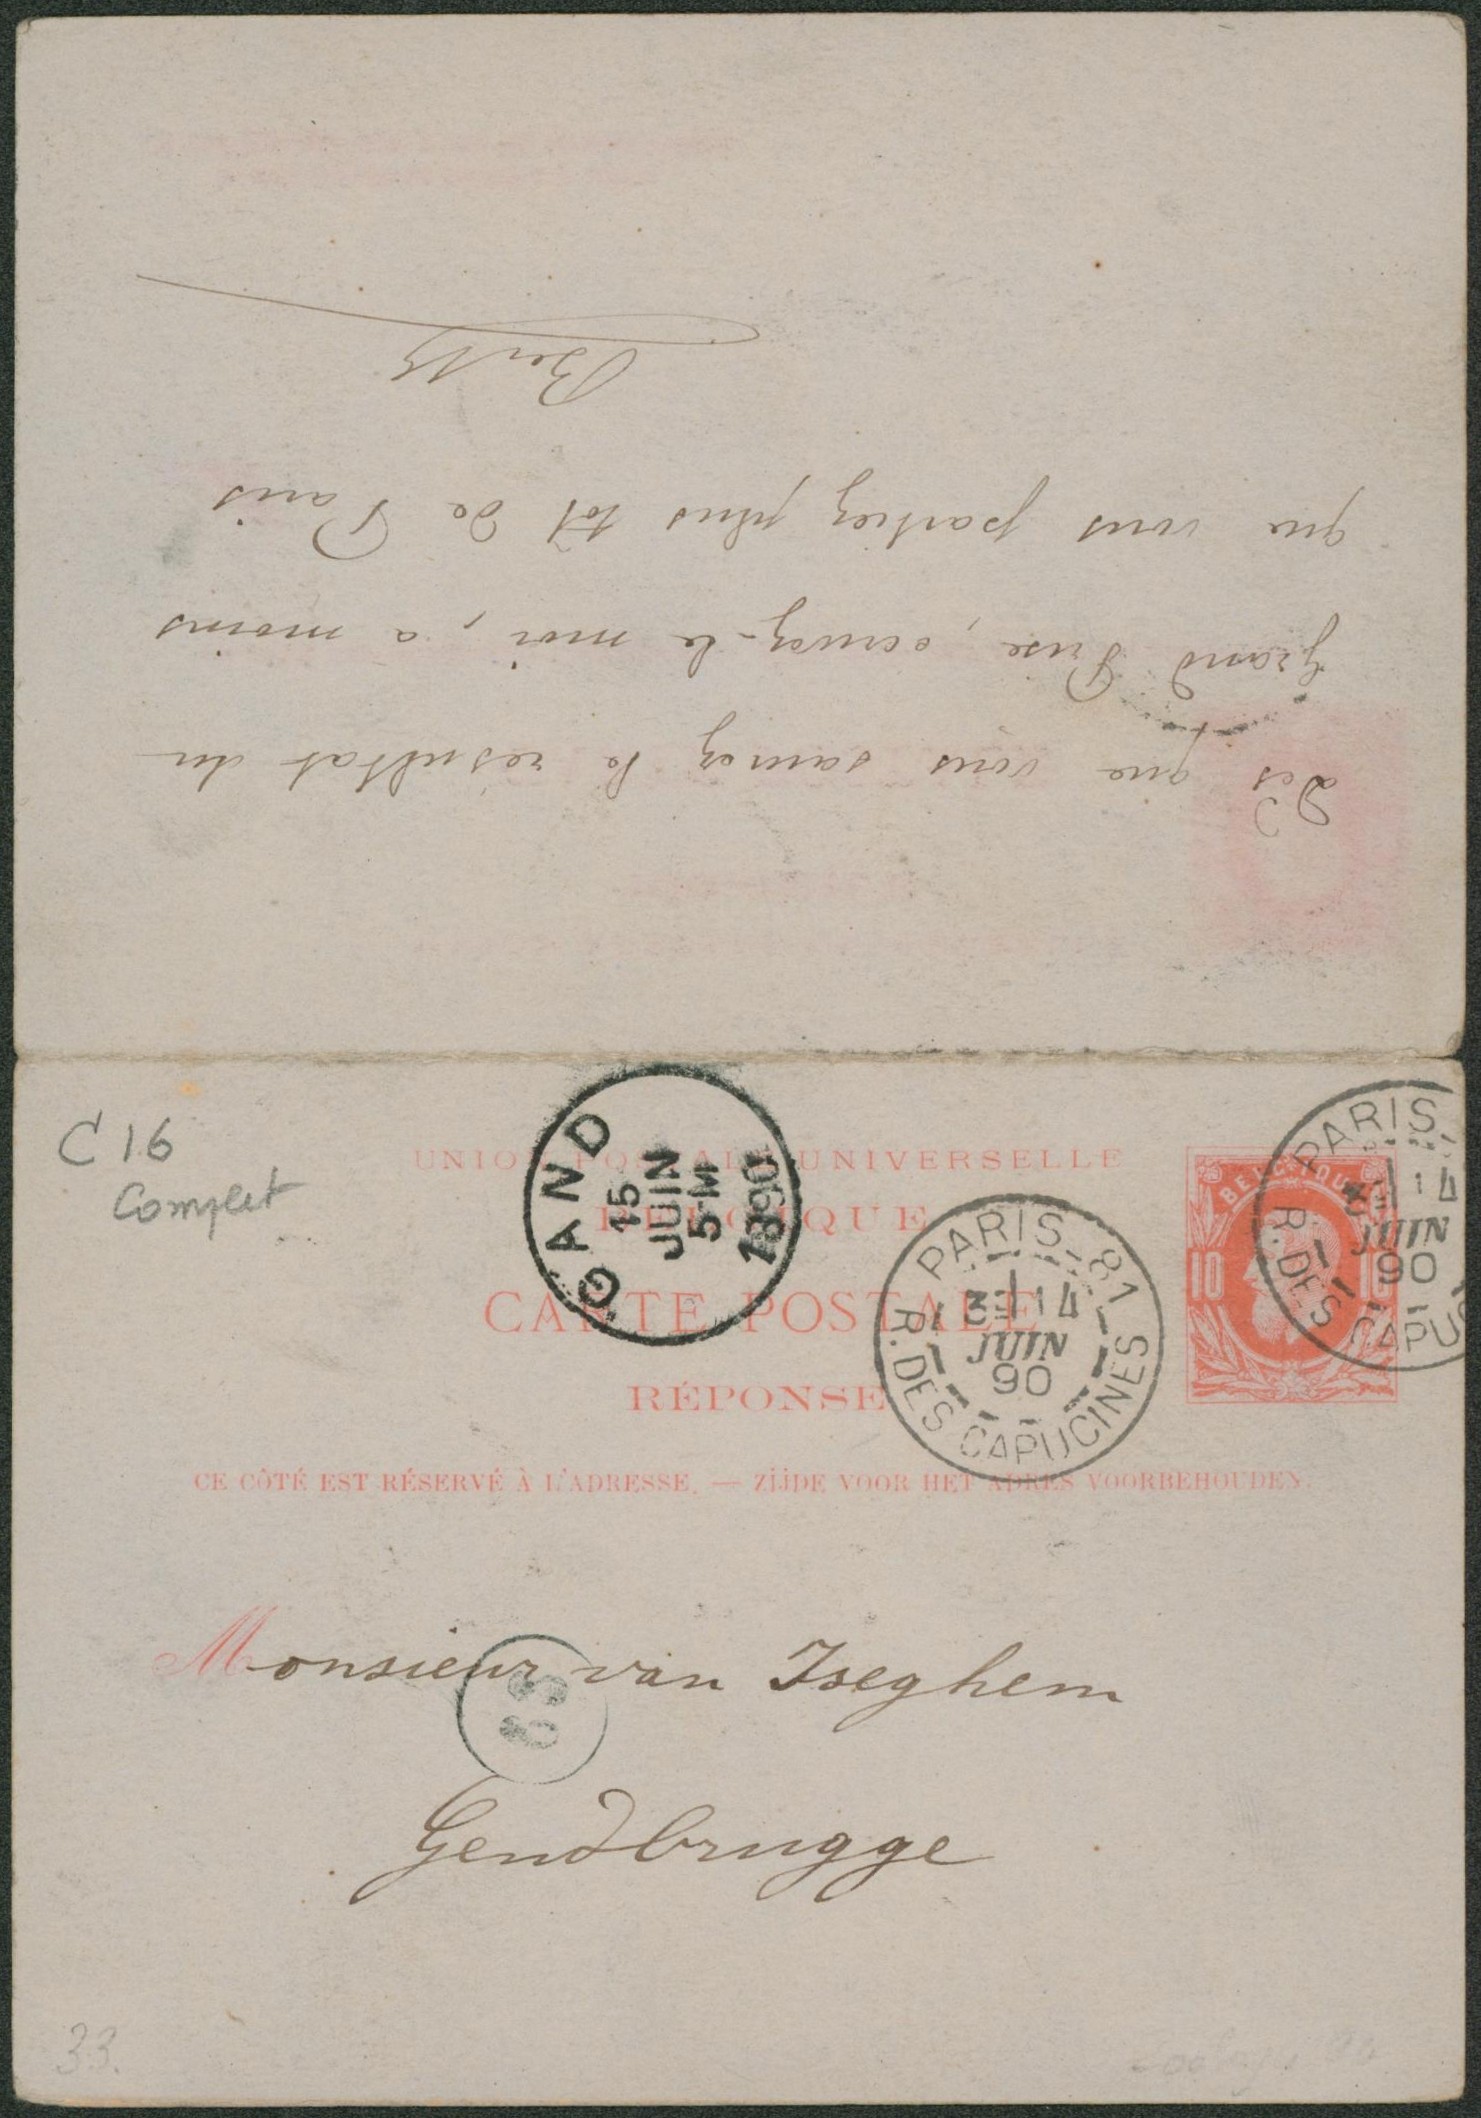 Dès que vous saurez le résultat du
grand Prise, ecrivez-le moi, a moins
que vous partiez plus tôt de Paris
C 16
Complet
UNION POSTALE UNIVERSELLE
BELGIQUE
CARTE POSTALE
RÉPONSE
CE CÔTÉ EST RÉSERVÉ À L'ADRESSE. — ZIJDE VOOR HET ADRES VOORBEHOUDEN.
BELGIQUE
10 10
GAND
15
JUIN
5-M
1890
PARIS_81
3E 14
JUIN
90
R. DES CAPUCINES
PARIS_
14
JUIN
90
R. DES CAPUC
Monsieur van Iseghem
Gendbrugge
33.